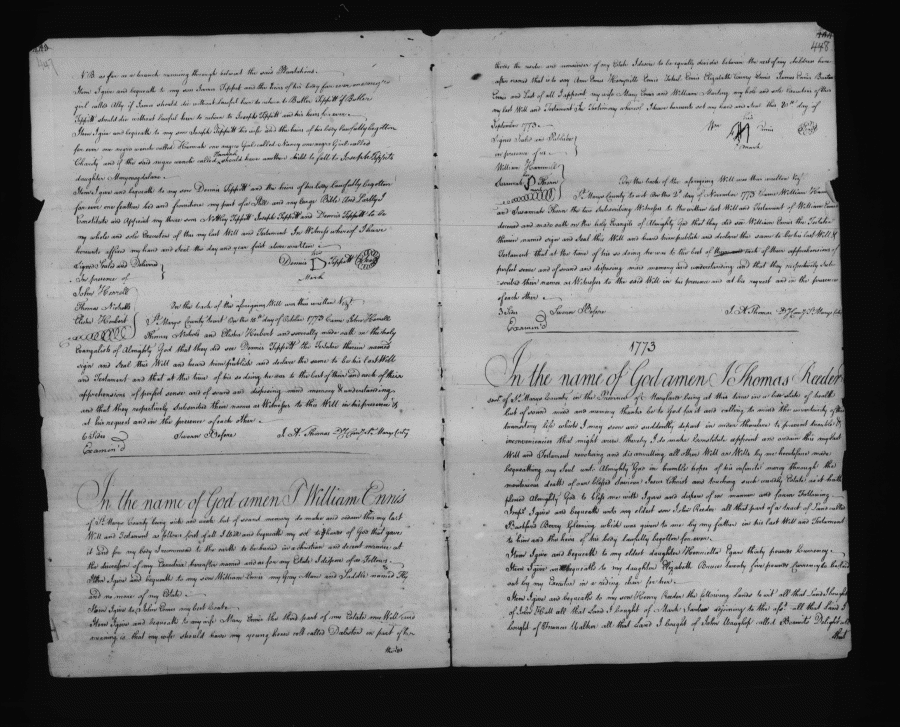 447
NB as far as a branch running through between the said Plantations.
Item I give and bequeath to my son James Tippett and the heirs of his body for ever one negro
girl called Abby if James should die without lawful heir to return to Butler Tippett if Butler
Tippett should die without lawful heir to return to Joseph Tippett and his heirs for ever.
Item I give and bequeath to my son Joseph Tippett his wife and the heirs of his body lawfully begotten
for ever one negro wench called Hannah one negro Girl called Nancy one negro Girl called
Charity and if the said negro wench called Hannah should have another child to fall to Joseph Tippetts
daughter
Item I give and bequeath to my son Dennis Tippett and the heirs of his body lawfully begotten
for ever one feather bed and furniture my part of a Still and my large Bible And Lastly I
Constitute and appoint my three sons Tippett Joseph Tippett and Dennis Tippett to be
my whole and sole Executors of this my last Will and Testament In Witness whereof I have
hereunto affixed my hand and Seal the day and year first above written
Signed Sealed and Delivered
In presence of
his
Dennis D Tippett Seal
Mark
John Horrell
Thomas Nicholls
Clator Herbert
On the back of the aforegoing Will was thus written Viz.
St. Marys County Sct On the 18th day of October 1773 Came John Horrell
Thomas Nichols and Clator Herbert and severally made oath on the holy
Evangelists of Almighty God that they did see Dennis Tippett the Testator therein named
sign and Seal this Will and heard him publish and declare the same to be his last Will
and Testament and that at the time of his so doing he was to the best of their and each of their
apprehensions of perfect sense and of sound and disposing mind memory & understanding
and that they respectively Subscribed their names as Witnesses to this Will in his presence &
at his request and in the presence of each other
6 Sides Sworn Before J. A. Thomas Dy Comy St. Marys County
Examin'd
In the name of God amen I William Ennis
of St. Marys County being sick and weak but of sound memory do make and ordain this my last
Will and Testament as follows first of all I Will and bequeath my sol to those of God that gave
it and for my body I recommend to the earth to be buried in a christian and decent manner at
the discression of my Executors hereafter named and as for my Estate I dispose of as Follows
Item I give and bequeath to my son William Ennis my Grey Mare and Saddle
and no more of my Estate
Item I give to John Ennis my best Coate
Item I give and bequeath to my wife Mary Ennis the third part of my Estate my Will and
meaning is that my wife should have my young horse colt called in part of her
thirds
448
thirds the rest and remainder of my Estate I desire to be equally divided between the rest of my children here
after named that is to say Ann Ennis Henrietta Ennis Isbel Ennis Elizabeth Ennis James Ennis
Ennis and last of all I appoint my wife Mary Ennis and William my hole and sole Executors of this
my last Will and Testament In Testimony whereof I have hereunto set my hand and Seal this 20th day of
September 1773
Signed Sealed and Published
in presence of us
his
Wm Ennis Seal
mark
William Hammill
Susannah Thorn
On the back of the aforegoing Will was thus written Viz.
St. Marys County to wit On the 2d day of November 1773 Came William
and Susannah Thorn the two Subscribing Witnesses to the within last Will and Testament of William Ennis
deceased and made oath on the holy Evangels of Almighty God that they did see William Ennis the Testator
therein named sign and Seal this Will and heard him publish and declare the same to be his last Will &
Testament that at the time of his so doing he was to the best of each of their apprehensions of
perfect sense and of sound and disposing mind memory and understanding and that they respectively Sub
scribed their names as Witnesses to the said Will in his presence and at his request and in the presence
of each other
3 Sides Sworn Before J. A. Thomas Dy Comy St Marys County
Examin'd
1773
In the name of God amen I Thomas Reeder
senr. of St. Marys County in the Province of Maryland being at this time in a low state of health
but of sound mind and memory thanks be to God for it and calling to mind the uncertainty of this
transitory life which I may soon and suddenly depart in order therefore to prevent trouble &
inconveniencies that might arise thereby I do make Constitute appoint and ordain this my last
Will and Testament revoking and disannulling all other Will or Wills by me heretofore made
bequeathing my Soul unto Almighty God in humble hopes of his infinite mercy through the
meritorious death of our blessed Saviour Jesus Christ and touching such worldly Estate as it hath
pleased Almighty God to bless me with I give and dispose of in manner and form Following
Imps. I give and bequeath unto my oldest son John Reeder all that part of a tract of Land called
Bashford Berry Gleaning which was given to me by my father in his last Will and Testament
to him and the heirs of his body lawfully begotten for ever
Item I give and bequeath to my oldest daughter Henrietta Egan thirty pounds Currency
Item I give and bequeath to my daughter Elizabeth Bruce twenty five pounds Currency to be laid
out by my Executor in a riding chair for her
Item I give and bequeath to my son Henry Reeder the following Lands to wit all that Land I bought
of John Hall all that Land I bought of Mark adjoining to the afd. all that Land I
bought of Truman all that Land I bought of John called Delight all
that